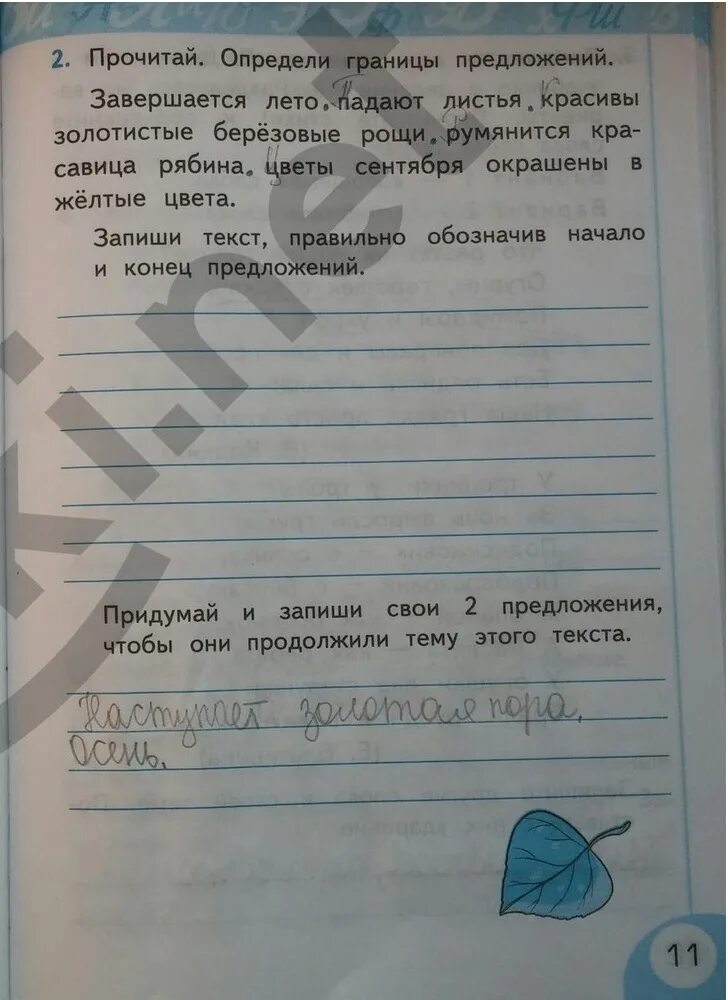 2. Прочитай. Определи границы предложений.
Завершается лето. Падают листья. Красивы
золотистые берёзовые рощи. Румянится кра-
савица рябина. Цветы сентября окрашены в
жёлтые цвета.
Запиши текст, правильно обозначив начало
и конец предложений.
Придумай и запиши свои 2 предложения,
чтобы они продолжили тему этого текста.
Наступает золотая пора.
Осень.
11
ki.net